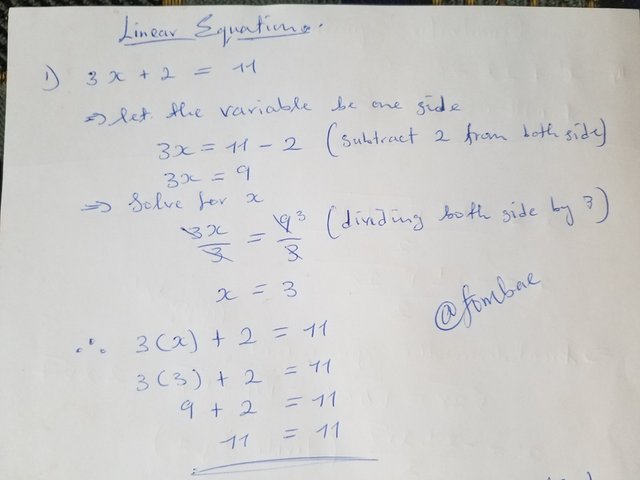 Linear Equations.
1) 3x + 2 = 11
⇒ let the variable be one side
3x = 11 - 2 (subtract 2 from both side)
3x = 9
⇒ Solve for x
3x/3 = 9/3 3 (dividing both side by 3)
x = 3
@fombae
∴ 3(x) + 2 = 11
3(3) + 2 = 11
9 + 2 = 11
11 = 11